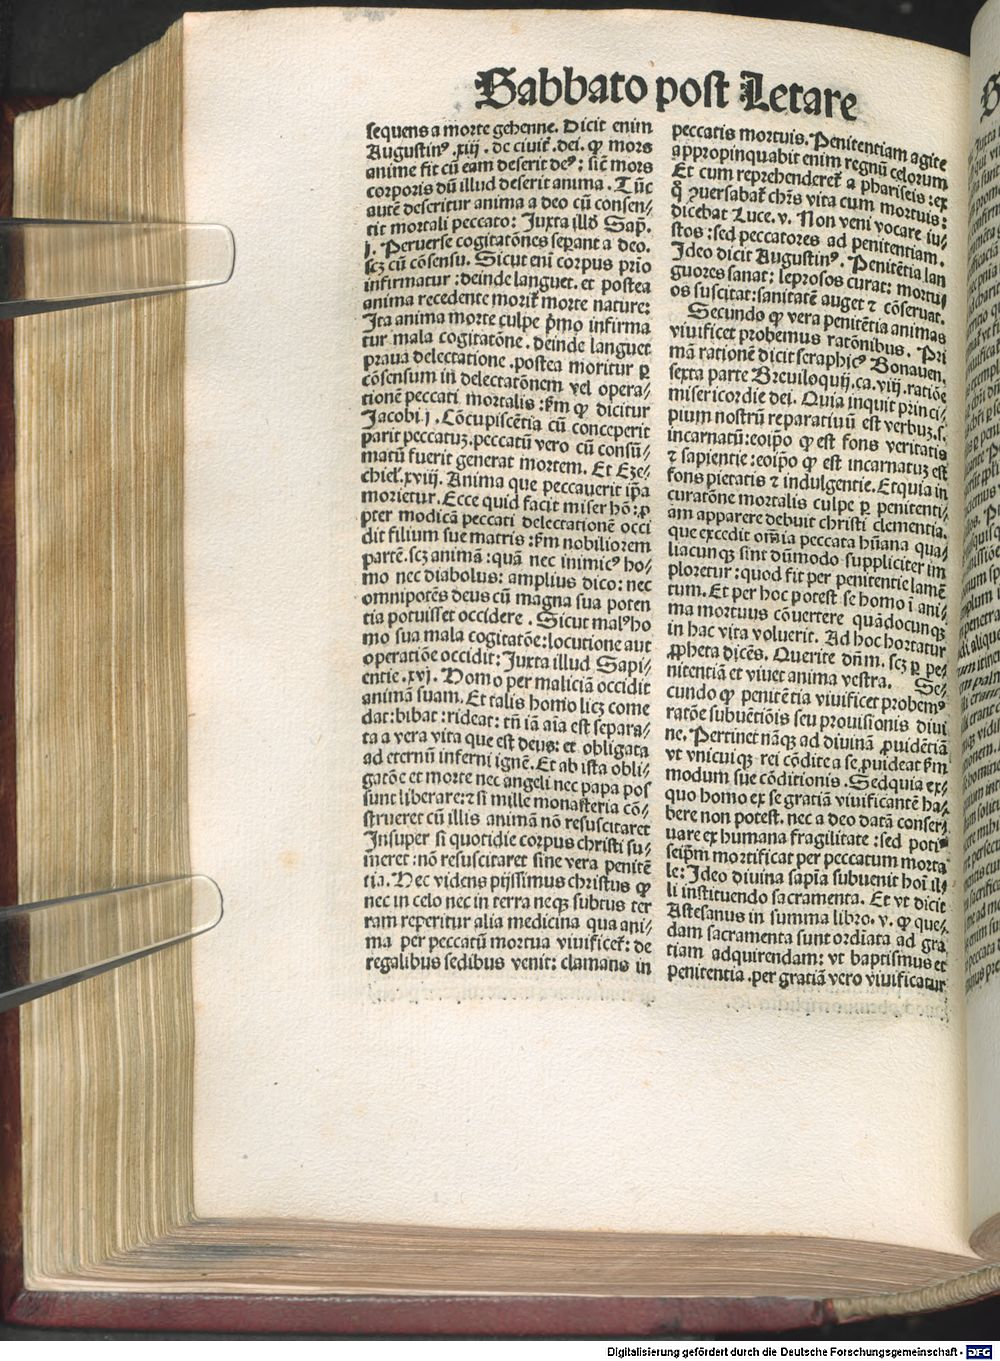 Sabbato post Letare
sequens a morte gehenne. Dicit enim
Augustinꝰ .xiij . de ciuit̃ .dei. ꝙ mors
anime fit cũ eam deserit deꝰ: sic̃ mors
corporis dũ illud deserit anima . Tũc
autẽ deseritur anima a deo cũ consen⸗
tit mortali peccato: Juxta illđ Sap̃.
j. Peruerse cogitatõnes sepant a deo.
scꝫ cũ cõsensu. Sicut eni corpus prio
infirmatur :deinde languet. et postea
anima recedente morit̃ morte nature:
Ita anima morte culpe p̃mo infirma
tur mala cogitatõne . deinde languet
praua delectatione .postea moritur ꝑ
cõsensum in delectatõnem vel opera⸗
tionẽ peccati mortalis :k̃m ꝙ dicitur
Jacobi.j . Cõcupiscẽtia cũ conceperit
parit peccatuꝫ.peccatũ vero cũ consũ⸗
matũ fuerit generat mortem. Et Eze⸗
chiel̃.xviij. Anima que peccauerit ip̃a
morietur. Ecce quid facit miser hõ :ꝓ
pter modicã peccati delectationẽ occi
dit filium sue matris :k̃m nobiliorem
partẽ.scꝫ animã :quã nec inimicꝰ ho⸗
mo nec diabolus: amplius dico: nec
omnipotẽs deus cũ magna sua poten
tia potuisset occidere . Sicut malꝰ ho
mo sua mala cogitatõe:locutione aut
operatiõe occidit: Juxta illud Sapi⸗
entie .xvj . Homo per maliciã occidit
animã suam. Et talis homo licꝫ come
dat:bibat :rideat: tñ iã aĩa est separa⸗
ta a vera vita que est deus: et obligata
ad eternũ inferni ignẽ. Et ab ista obli⸗
gatõe et morte nec angeli nec papa pos
sunt liberare:⁊ si mille monasteria cõ⸗
strueret cũ illis animã nõ resuscitaret
Insuper si quotidie corpus christi su⸗
meret :nõ resuscitaret sine vera penitẽ
tia. Hec videns pijssimus christus ꝙ
nec in celo nec in terra neqꝫ subtus ter
ram reperitur alia medicina qua ani⸗
ma per peccatũ mortua viuificet̃: de
regalibus sedibus venit: clamans in
peccatis mortuis. Penitentiam agite
appropinquabit enim regnũ celorum
Et cum reprehenderet̃ a phariseis :ex
ꝙ ꝯuersabat̃ chr̃s vita cum mortuis:
dicebat Luce. v. Non veni vocare iu⸗
stos :sed peccatores ad penitentiam.
Ideo dicit Augustinꝰ. Penitẽtia lan
guores sanat: leprosos curat: mortu
os suscitat:sanitatẽ auget ⁊ cõseruat.
Secundo ꝙ vera penitẽtia animas
viuificet probemus ratõnibus. Pri
mã rationẽ dicit seraphicꝰ Bonauen.
sexta parte Breuiloquij.ca.viij.ratiõe
misericordie dei. Quia inquit princi⸗
pium nostrũ reparatiuũ est verbuꝫ.s.
incarnatũ:eoip̃o ꝙ est fons veritatis
⁊ sapientie :eoip̃o ꝙ est incarnatuꝫ est
fons pietatis ⁊ indulgentie. Et quia in
curatõne mortalis culpe ꝑ penitenti⸗
am apparere debuit christi clementia.
que excedit om̃ia peccata hũana qua⸗
liacunqꝫ sint dũmodo suppliciter im
ploretur :quod fit per penitentie lamẽ
tum. Et per hoc potest se homo ĩ ani⸗
ma mortuus cõuertere quãdocunqꝫ
in hac vita voluerit. Ad hoc hortatur
ꝓpheta dicẽs. Querite dñm. scꝫ ꝑ pe⸗
nitentiã et viuet anima vestra. Se⸗
cundo ꝙ penitẽtia viuificet probemꝰ
ratõe subuẽtiõis seu prouisionis diui
ne. Pertinet nãqꝫ ad diuinã ꝓuidẽtiã
vt vnicuiqꝫ rei cõdite a se ꝓuideat k̃m
modum sue cõditionis . Sed quia ex⸗
quo homo ex se gratiã viuificantẽ ha⸗
bere non potest. nec a deo datã conser⸗
uare ex humana fragilitate :sed poti⸗
seip̃m mortificat per peccatum morta
le: Ideo diuina sapĩa subuenit hoĩ il⸗
li instituendo sacramenta. Et vt dicit
Astesanus in summa libro. v. ꝙ que⸗
dam sacramenta sunt ordĩata ad gra
tiam adquirendam: vt baptismus et
penitentia .per gratiã vero viuificatur
Digitalisierung gefördert durch die Deutsche Forschungsgemeinschaft - DFG